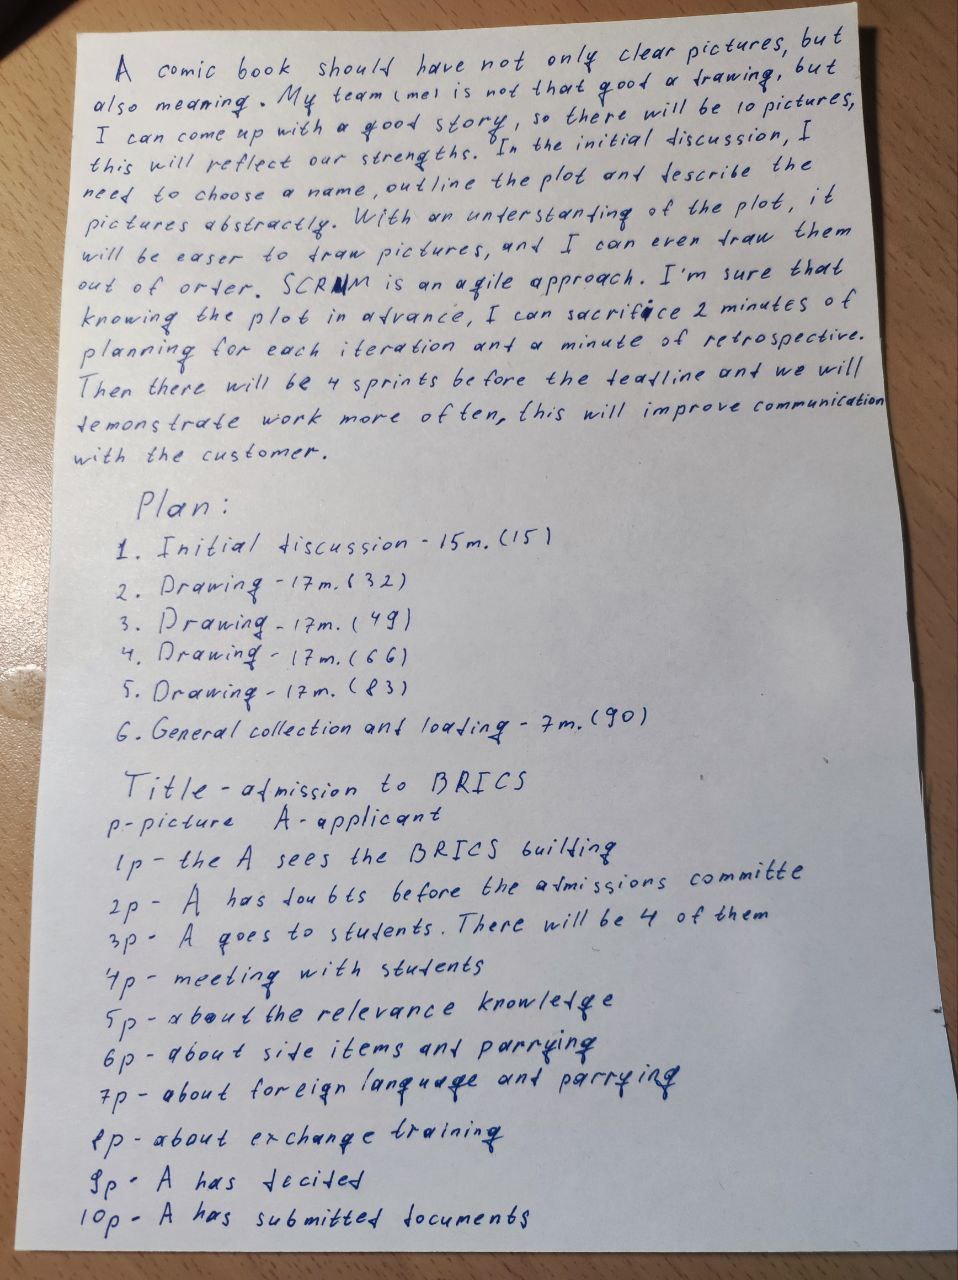 A comic book should have not only clear pictures, but
also meaning. My team (me) is not that good a drawing, but
I can come up with a good story, so there will be 10 pictures,
this will reflect our strengths. In the initial discussion, I
need to choose a name, outline the plot and describe the
pictures abstractly. With an understanding of the plot, it
will be easer to draw pictures, and I can even draw them
out of order. SCRUM is an agile approach. I'm sure that
knowing the plot in advance, I can sacrifice 2 minutes of
planning for each iteration and a minute of retrospective.
Then there will be 4 sprints before the deadline and we will
demonstrate work more often, this will improve communication
with the customer.
Plan:
1. Initial discussion - 15m. (15)
2. Drawing - 17m. (32)
3. Drawing - 17m. (49)
4. Drawing - 17m. (66)
5. Drawing - 17m. (83)
6. General collection and loading - 7m. (90)
Title - admission to BRICS
p-picture A-applicant
1p - the A sees the BRICS building
2p - A has doubts before the admissions committe
3p - A goes to students. There will be 4 of them
4p - meeting with students
5p - about the relevance knowledge
6p - about side items and parrying
7p - about foreign language and parrying
8p - about exchange training
9p - A has decided
10p - A has submitted documents